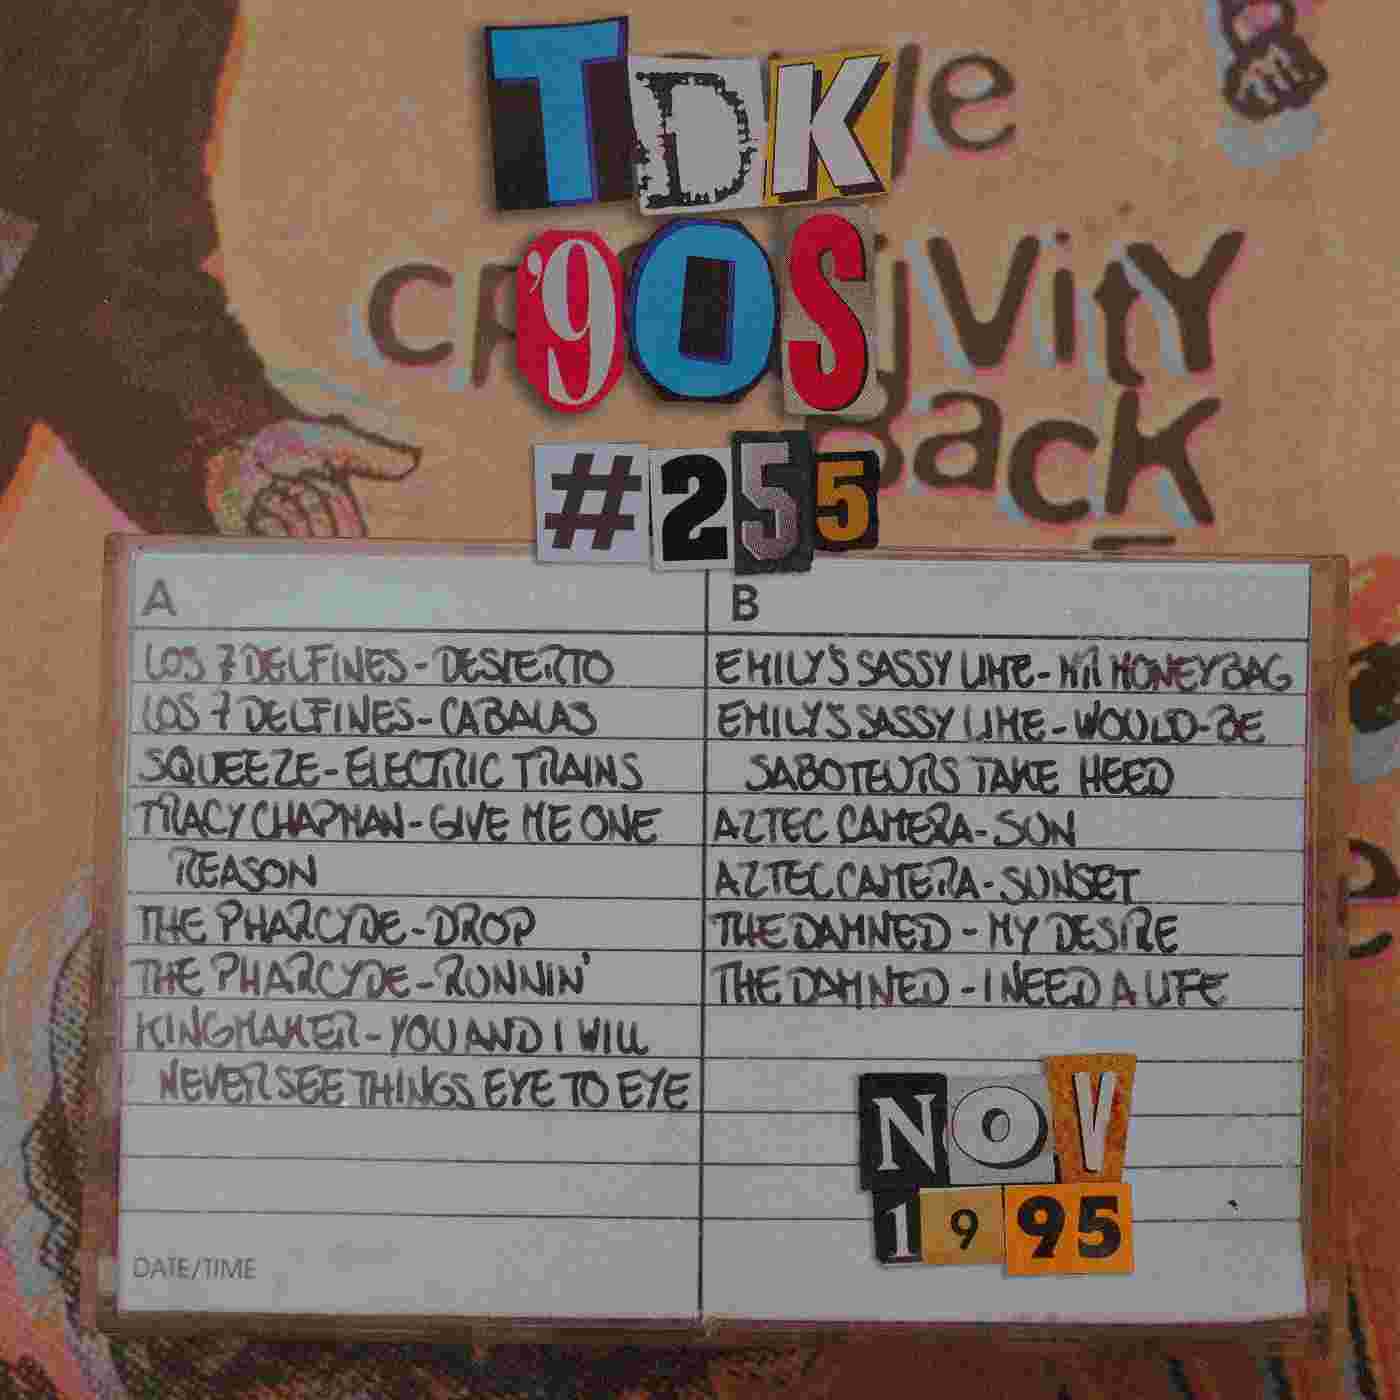 TDK
'90S
#255
CREATIVITY
BACK
A
LOS 7 DELFINES - DESIERTO
LOS 7 DELFINES - CABALAS
SQUEEZE - ELECTRIC TRAINS
TRACY CHAPMAN - GIVE ME ONE
REASON
THE PHARCYDE - DROP
THE PHARCYDE - RUNNIN'
KINGMAKER - YOU AND I WILL
NEVER SEE THINGS EYE TO EYE
DATE/TIME
B
EMILY'S SASSY LIME - MR MONEYBAG
EMILY'S SASSY LIME - WOULD-BE
SABOTEURS TAKE HEED
AZTEC CAMERA - SUN
AZTEC CAMERA - SUNSET
THE DAMNED - MY DESIRE
THE DAMNED - I NEED A LIFE
NOV
1995